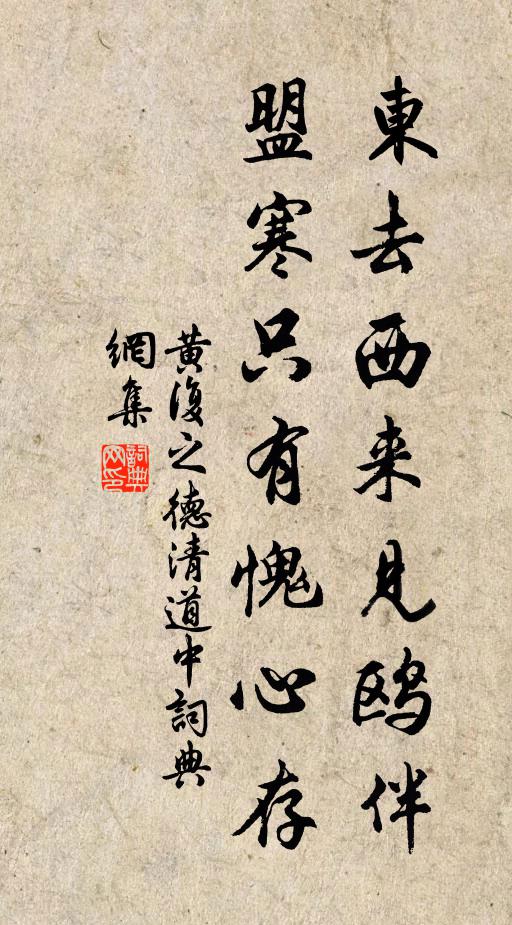 東去西来見鸥伴
盟寒只有愧心存
黄復之德清道中詞典
網集
詞典
网印